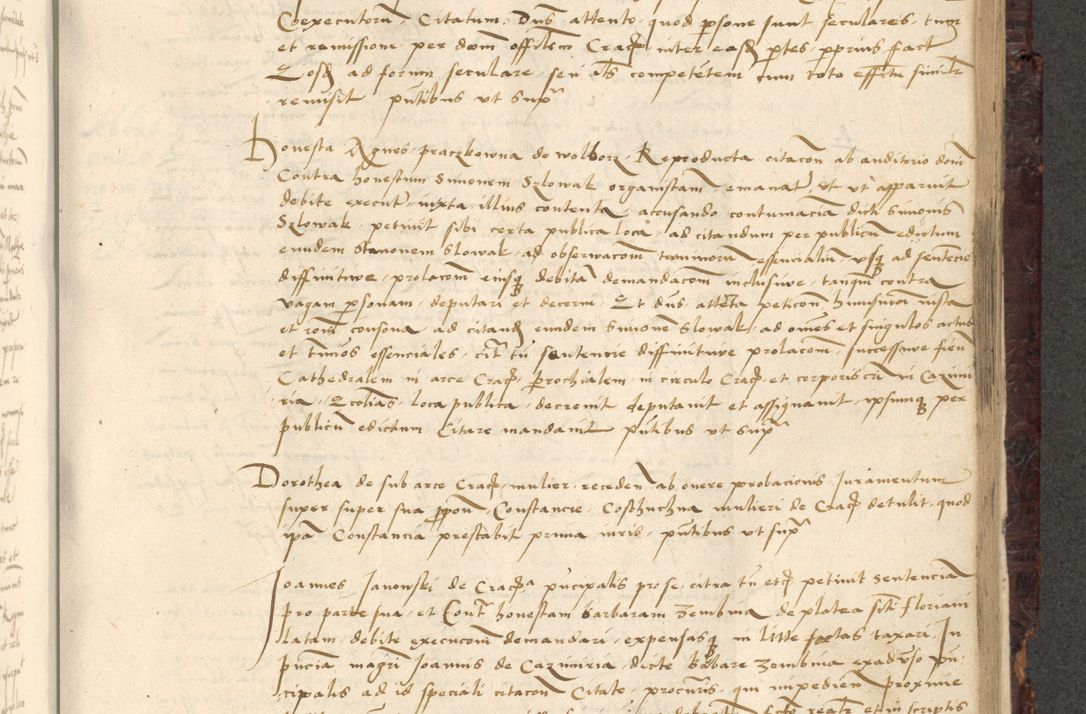 Coexecutorum, Citatum. Dns attento quod psone sunt seculares, tum
et ramissione per dom offitem Crac inter easd ptes pprius fact
Eosd ad forum seculare seu als competetem cum toto effectu simitr
remisit pntibus vt supra
Honesta Agnes praczkowna de wolborz Reproducta citacon ab auditorio domi
Contra honestum Simonem Szlowak organistam emanat, Et vt apparuit
debite execut, iuxta illius contenta accusando contumacia dicti Simonis
Szlowak petiuit sibi certa publica loca ad citandum per publicu edictum
eundem Simonem Slowak ad obserwacom terminoru essencialiu vsq ad sentencie
diffinitiwe prolacom eiusq debita demandacom inclusiwe, tanqm contra
vagam psonam deputari et decerni. Et dns attenta peticon huiusmoi iusta
et roni consona ad citand eundem Simone Slowak ad omes et singulos actus
et tmios essenciales, citra tn sentencie diffinitiwe prolacom, successiwe fiend
Cathedralem in arce Crac, Parochialem in circulo Crac et corporis cri in Cazimi
ria, Ecclias loca publica decreuit deputauit et assignauit ipsumq per
publicu edictum Citare mandauit pntibus vt supra
Dorothea de sub arce Crac mulier receden ab onere probacionis Iuramentum
super super sua ppon Constancie Coschuchna mulieri de Crac detulit, quod
ipa Constancia prestabit prima iuris pntibus vt supra
Ioannes Ianowski de Crac pncipalis pro se citra tn etc petiuit Sentencia
pro parte sua et Contra honestam Barbaram Zembina de platea sti floriani
latam debite execucom demandari, expensasq in lite factas taxari, In
pncia magri Ioannis de Cazimiria dicte Barbare Zembina exaduso prin
cipalis ad id speciali citacon Citate procuris, qui impedien proxime